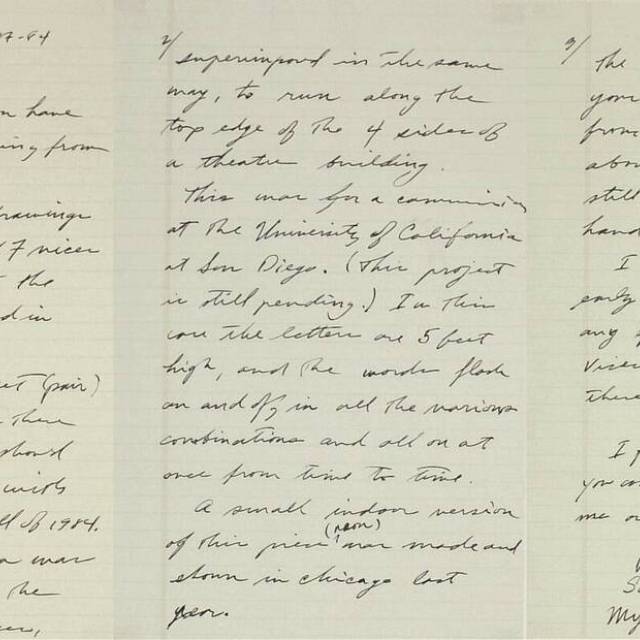 7-84
n have
ing from
drawings
7 vices
t the
d in
et (pair)
there
should
with
ll of 1984.
a was
the
2/
superimposed in the same
way, to run along the
top edge of the 4 sides of
a theatre building.
This was for a commission
at the University of California
at San Diego. (This project
is still pending.) In this
case the letters are 5 feet
high, and the words flash
on and off, in all the various
combinations and all on at
once from time to time.
A small indoor version
(neon)
of this piece was made and
shown in Chicago last
year.
3/
the
your
from
abou
still
hand
I
early
any
Vices
there
I p
you co
me o
My